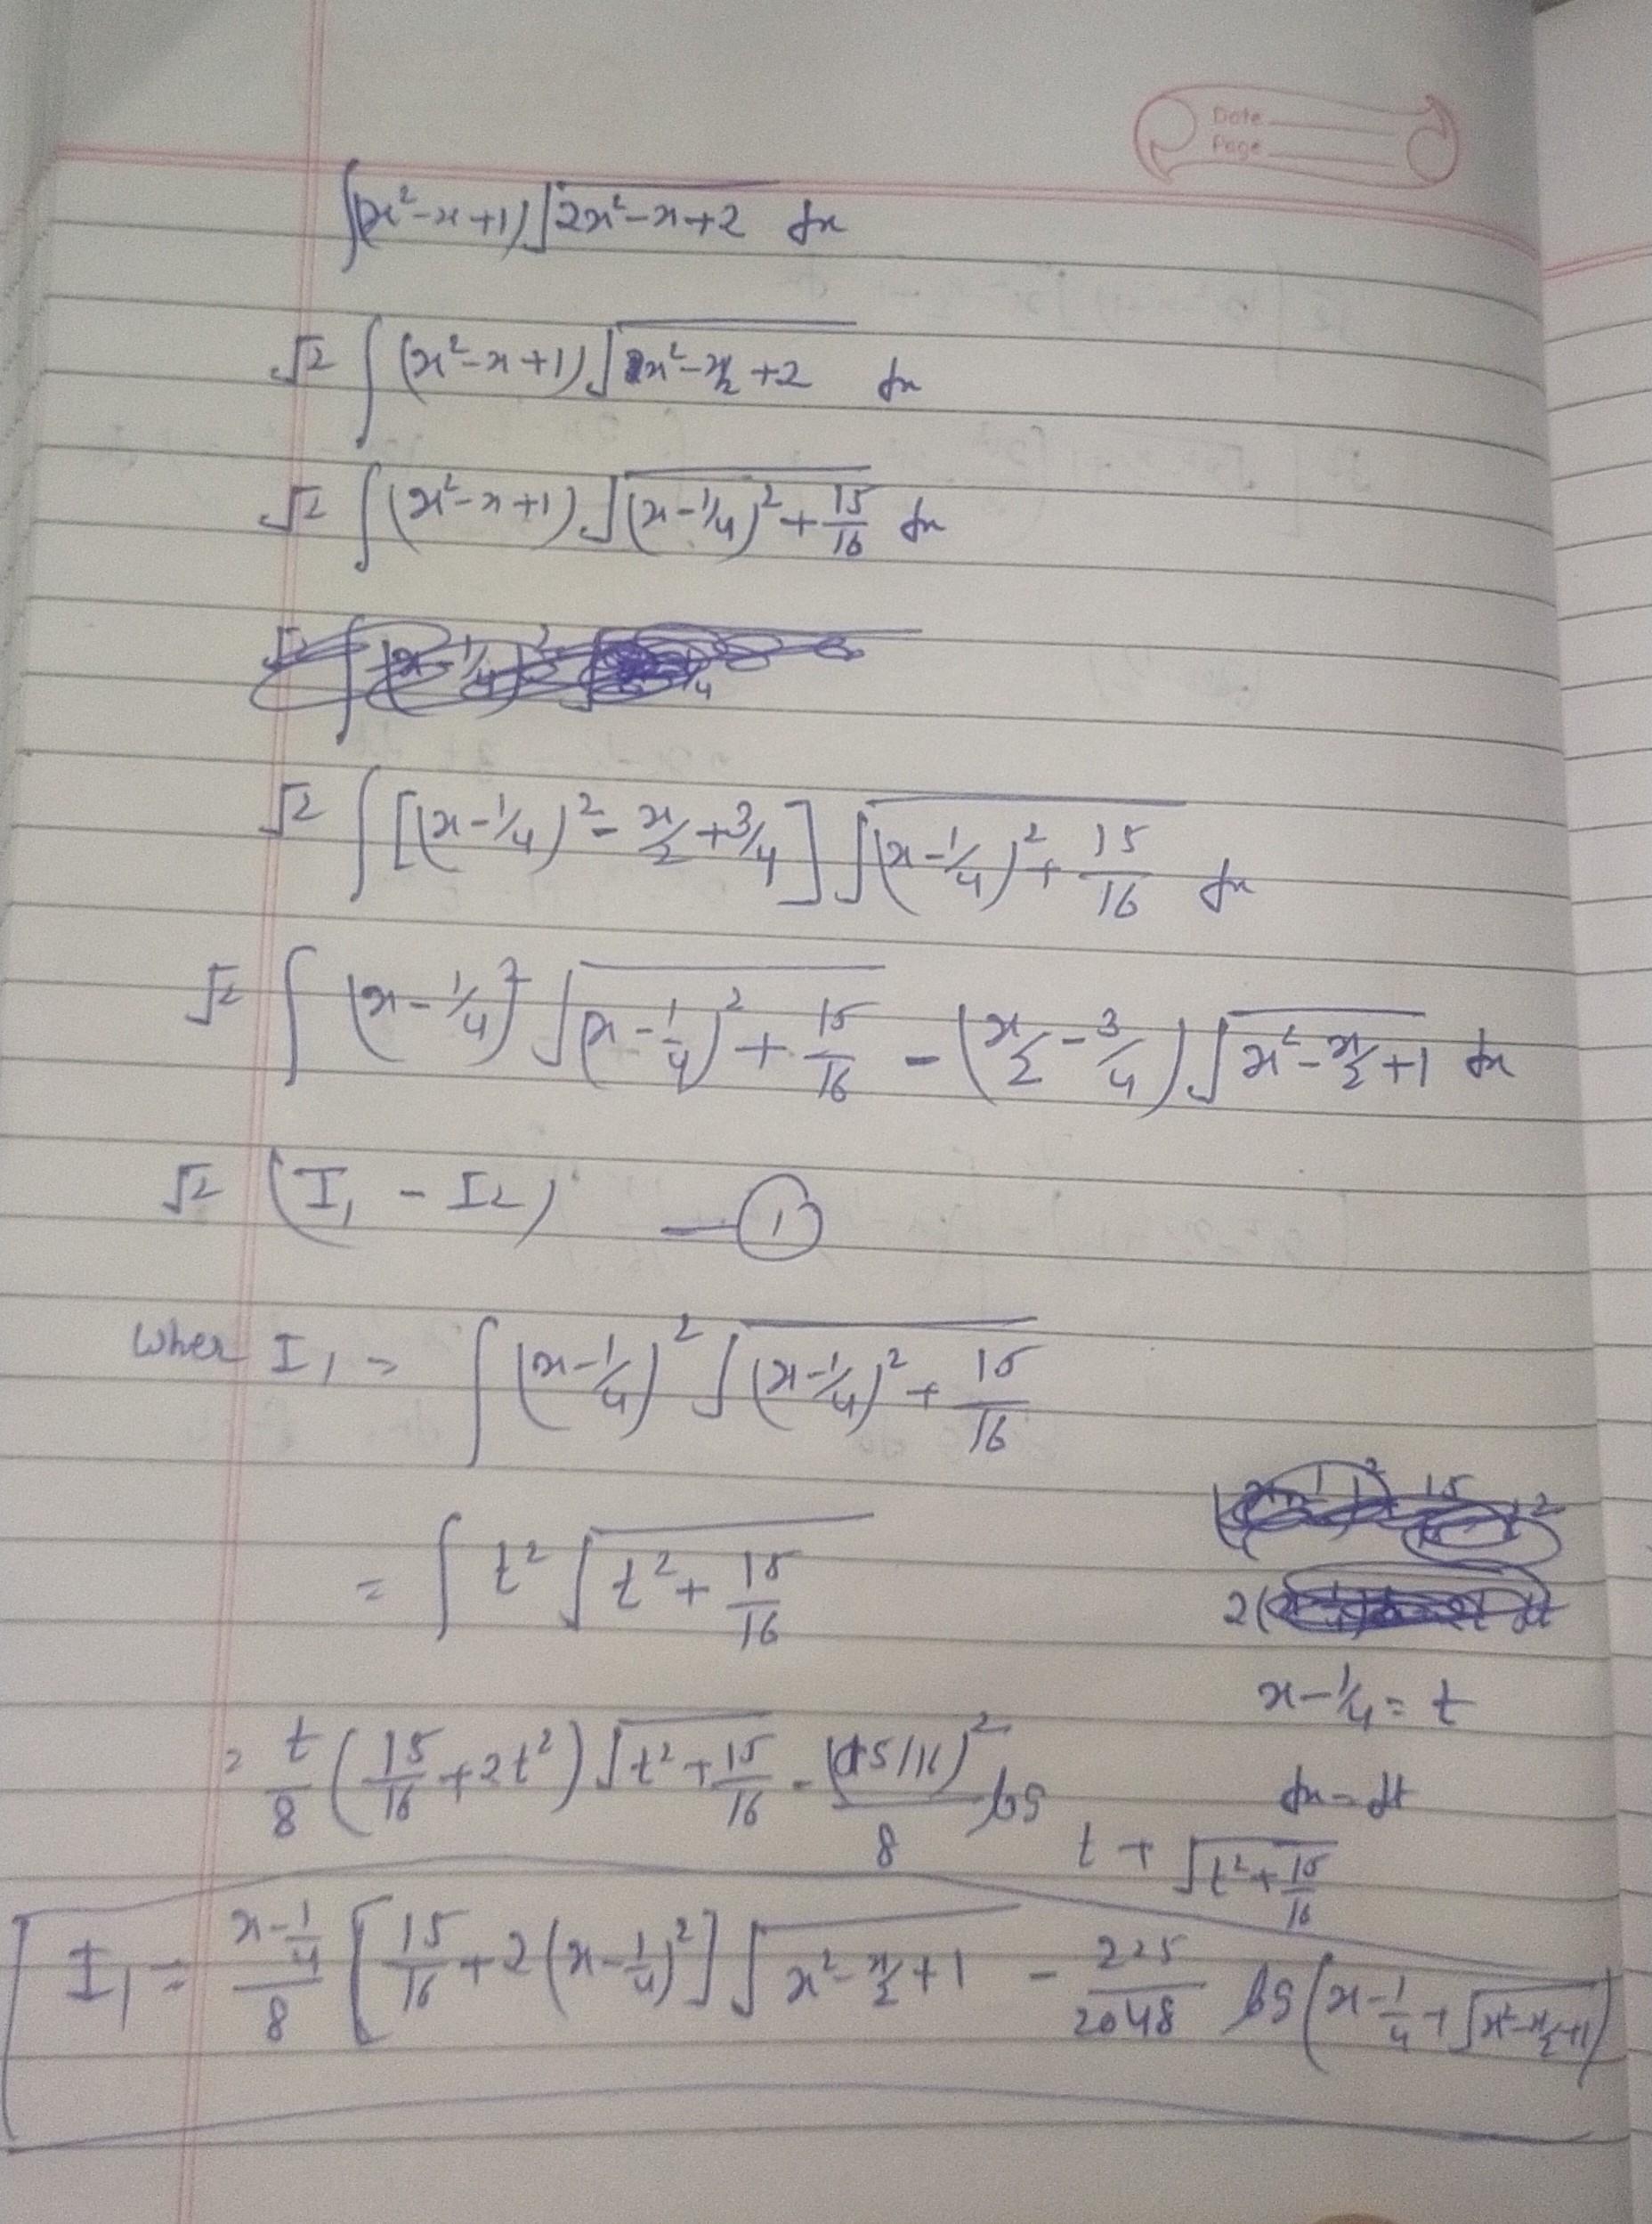 Date
Page
∫(x²-x+1)√(2x²-x+2) dx
√2 ∫(x²-x+1)√(x²-x/2+2) dx
√2 ∫(x²-x+1)√((x-1/4)²+15/16) dx
√2 ∫[(x-1/4)²-x/2+3/4]√((x-1/4)²+15/16) dx
√2 ∫(x-1/4)²√((x-1/4)²+15/16) - (x/2-3/4)√(x²-x/2+1) dx
√2 (I₁ - I₂) —①
Wher I₁ = ∫(x-1/4)²√((x-1/4)²+15/16)
= ∫t²√(t²+15/16)
x-1/4 = t
= t/8 (15/16+2t²)√(t²+15/16) - (15/16)²/8 log t+√(t²+15/16)
dx = dt
I₁ = (x-1/4)/8 [15/16+2(x-1/4)²]√(x²-x/2+1) - 225/2048 log(x-1/4+√(x²-x/2+1))